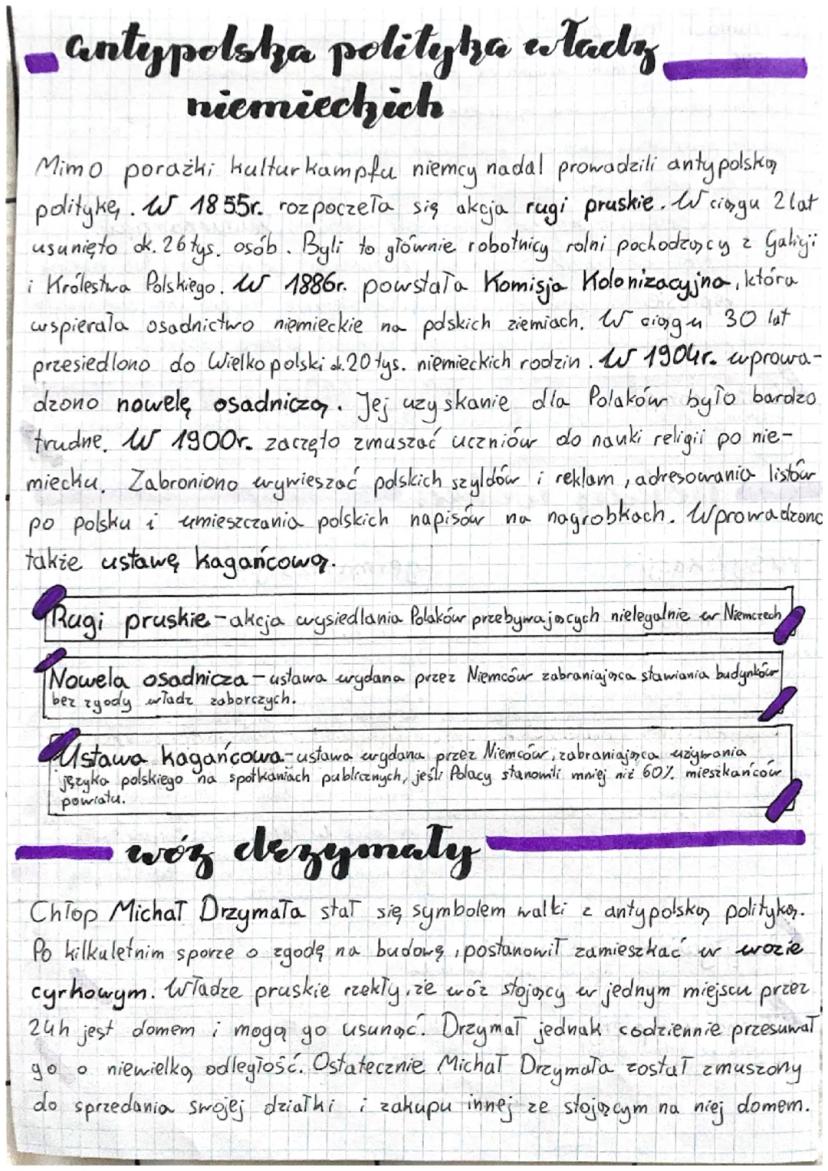 antypolska polityka władz
niemieckich
Mimo porażki kulturkampfu niemcy nadal prowadzili antypolską
politykę. W 1855r. rozpoczeła się akcja rugi pruskie. W ciągu 2 lat
usunięto ok. 26 tys. osób. Byli to głównie robotnicy rolni pochodzący z Galicji
i Królestwa Polskiego. W 1886r. powstała Komisja Kolonizacyjna, która
wspierała osadnictwo niemieckie na polskich ziemiach. W ciągu 30 lat
przesiedlono do Wielkopolski ok. 20 tys. niemieckich rodzin. W 1904r. wprowa-
dzono nowelę osadniczą. Jej uzyskanie dla Polaków było bardzo
trudne. W 1900r. zaczęto zmuszać uczniów do nauki religii po nie-
miecku. Zabroniono wywieszać polskich szyldów i reklam, adresowania listów
po polsku i umieszczania polskich napisów na nagrobkach. Wprowadzono
także ustawę kagańcową.
Rugi pruskie - akcja wysiedlania Polaków przebywających nielegalnie w Niemczech
Nowela osadnicza - ustawa wydana przez Niemców zabraniająca stawiania budynków
bez zgody władz zaborczych.
Ustawa kagańcowa - ustawa wydana przez Niemców, zabraniająca używania
języka polskiego na spotkaniach publicznych, jeśli Polacy stanowili mniej niż 60% mieszkańców
powiatu.
wóz drzymały
Chłop Michał Drzymała stał się symbolem walki z antypolską polityką.
Po kilkuletnim sporze o zgodę na budowę, postanowił zamieszkać w wozie
cyrkowym. Władze pruskie rzekły, że wóz stojący w jednym miejscu przez
24h jest domem i mogą go usunąć. Drzymał jednak codziennie przesuwał
go o niewielką odległość. Ostatecznie Michał Drzymała został zmuszony
do sprzedania swojej działki i zakupu innej ze stojącym na niej domem.